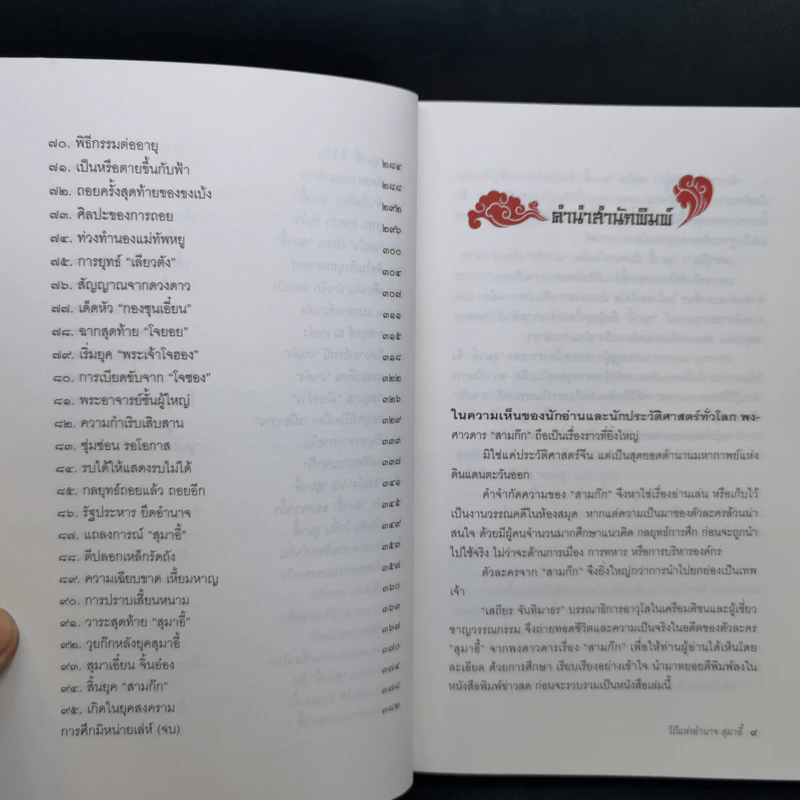 ๗๐. พิธีกรรมต่ออายุ ๒๘๔
๗๑. เป็นหรือตายขึ้นกับฟ้า ๒๘๘
๗๒. ถอยครั้งสุดท้ายของขงเบ้ง ๒๙๒
๗๓. ศิลปะของการถอย ๒๙๖
๗๔. ท่วงทำนองแม่ทัพหยู ๓๐๐
๗๕. การยุทธ์ "เลียวตัง" ๓๐๔
๗๖. สัญญาณจากดวงดาว ๓๐๗
๗๗. เด็ดหัว "กองซุนเอี๋ยน" ๓๑๑
๗๘. ฉากสุดท้าย "โจยอย" ๓๑๕
๗๙. เริ่มยุค "พระเจ้าโจฮอง" ๓๑๘
๘๐. การเบียดขับจาก "โจซอง" ๓๒๒
๘๑. พระอาจารย์ชั้นผู้ใหญ่ ๓๒๕
๘๒. ความกำเริบเสิบสาน ๓๒๙
๘๓. ซุ่มซ่อน รอโอกาส ๓๓๓
๘๔. รบได้ให้แสดงรบไม่ได้ ๓๓๗
๘๕. กลยุทธ์ถอยแล้ว ถอยอีก ๓๔๑
๘๖. รัฐประหาร ยึดอำนาจ ๓๔๕
๘๗. แถลงการณ์ "สุมาอี้" ๓๔๙
๘๘. ตีปลอกเหล็กรัดถัง ๓๕๓
๘๙. ความเฉียบขาด เหี้ยมหาญ ๓๕๗
๙๐. การปราบเสี้ยนหนาม ๓๖๐
๙๑. วาระสุดท้าย "สุมาอี้" ๓๖๓
๙๒. วุยก๊กหลังยุคสุมาอี้ ๓๖๗
๙๓. สุมาเอี๋ยน จิ้นอ๋อง ๓๗๕
๙๔. สิ้นยุค "สามก๊ก" ๓๗๘
๙๕. เกิดในยุคสงคราม ๓๘๒
การศึกมิหน่ายเล่ห์ (จบ)
คำนำสำนักพิมพ์
ในความเห็นของนักอ่านและนักประวัติศาสตร์ทั่วโลก พง-
ศาวดาร "สามก๊ก" ถือเป็นเรื่องราวที่ยิ่งใหญ่
มิใช่แค่ประวัติศาสตร์จีน แต่เป็นสุดยอดตำนานมหากาพย์แห่ง
ดินแดนตะวันออก
คำจำกัดความของ "สามก๊ก" จึงหาใช่เรื่องอ่านเล่น หรือเก็บไว้
เป็นงานวรรณคดีในห้องสมุด หากแต่ความเป็นมาของตัวละครล้วนน่า
สนใจ ด้วยมีผู้คนจำนวนมากศึกษาแนวคิด กลยุทธ์การศึก ก่อนจะถูกนำ
ไปใช้จริง ไม่ว่าจะด้านการเมือง การทหาร หรือการบริหารองค์กร
ตัวละครจาก "สามก๊ก" จึงยิ่งใหญ่กว่าการนำไปยกย่องเป็นเทพ
เจ้า
"เสถียร จันทิมาธร" บรรณาธิการอาวุโสในเครือมติชนและผู้เชี่ยว
ชาญวรรณกรรม จึงถ่ายทอดชีวิตและความเป็นจริงในอดีตของตัวละคร
"สุมาอี้" จากพงศาวดารเรื่อง "สามก๊ก" เพื่อให้ท่านผู้อ่านได้เห็นโดย
ละเอียด ด้วยการศึกษา เรียบเรียงอย่างเข้าใจ นำมาทยอยตีพิมพ์ลงใน
หนังสือพิมพ์ข่าวสด ก่อนจะรวบรวมเป็นหนังสือเล่มนี้
วิถีแห่งอำนาจ สุมาอี้ ๙